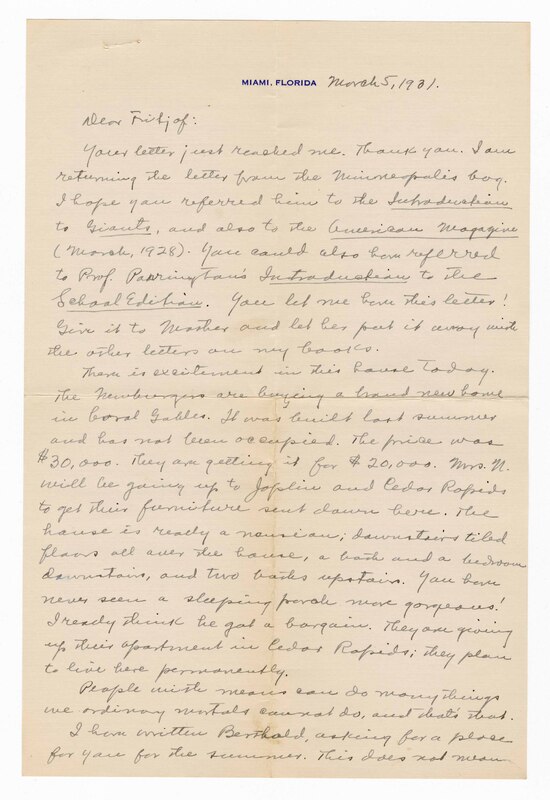 MIAMI, FLORIDA March 5, 1931.
Dear Fritjof:
Your letter just reached me. Thank you. I am
returning the letter from the Minneapolis boy.
I hope you referred him to the Introduction
to Giants, and also to the American Magazine
(March, 1928). You could also have referred
to Prof. Parrington's Introduction to the
School Edition. You let me have this letter!
Give it to Mother and let her put it away with
the other letters on my books.
There is excitement in this house today.
The Newburgers are buying a brand new home
in Coral Gables. It was built last summer
and has not been occupied. The price was
$30,000. They are getting it for $20,000. Mrs. N.
will be going up to Joplin and Cedar Rapids
to get their furniture sent down here. The
house is really a mansion; downstairs tiled
floors all over the house, a bath and a bedroom
downstairs, and two baths upstairs. You have
never seen a sleeping porch more gorgeous!
I really think he got a bargain. They are giving
up their apartment in Cedar Rapids; they plan
to live here permanently.
People with means can do many things
we ordinary mortals cannot do, and that's that.
I have written Berthold, asking for a place
for you for the summer. This does not mean